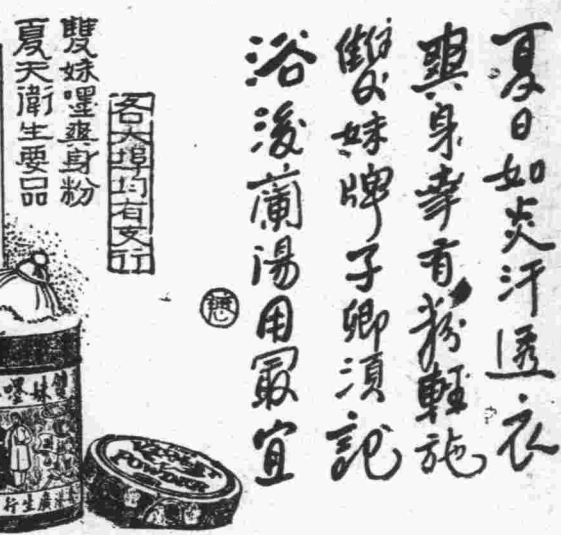 夏日如炎汗透衣
爽身幸有粉輕施
雙妹牌子卿須記
浴後蘭湯用最宜
各大埠均有支行
雙妹嚜爽身粉
夏天衛生要品
雙妹嚜
廣生行
POWDER